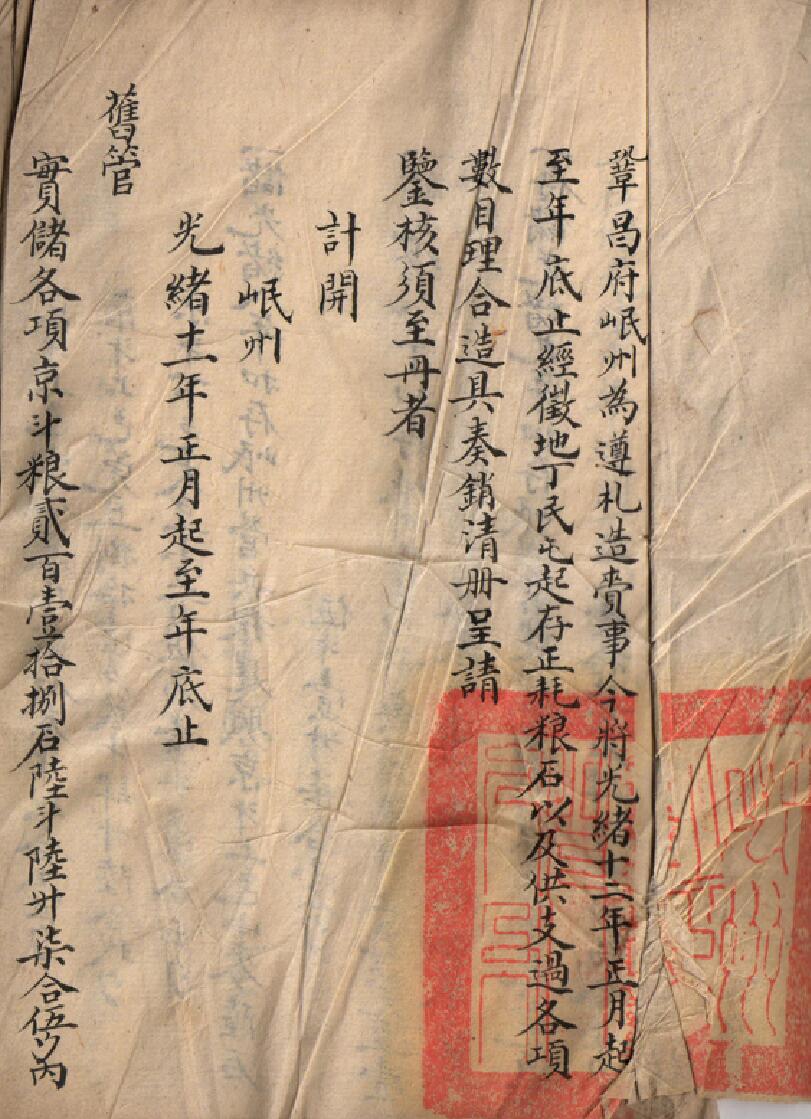 鞏昌府岷州為遵札造賫事今將光緒十二年正月起
至年底止經徵地丁民屯起存正耗粮石以及供支過各項
數目理合造具奏銷清册呈請
鑒核須至册者
計開
岷州
光緒十一年正月起至年底止
舊管
實儲各項京斗粮貳百壹拾捌石陸斗陸升柒合伍勺丙